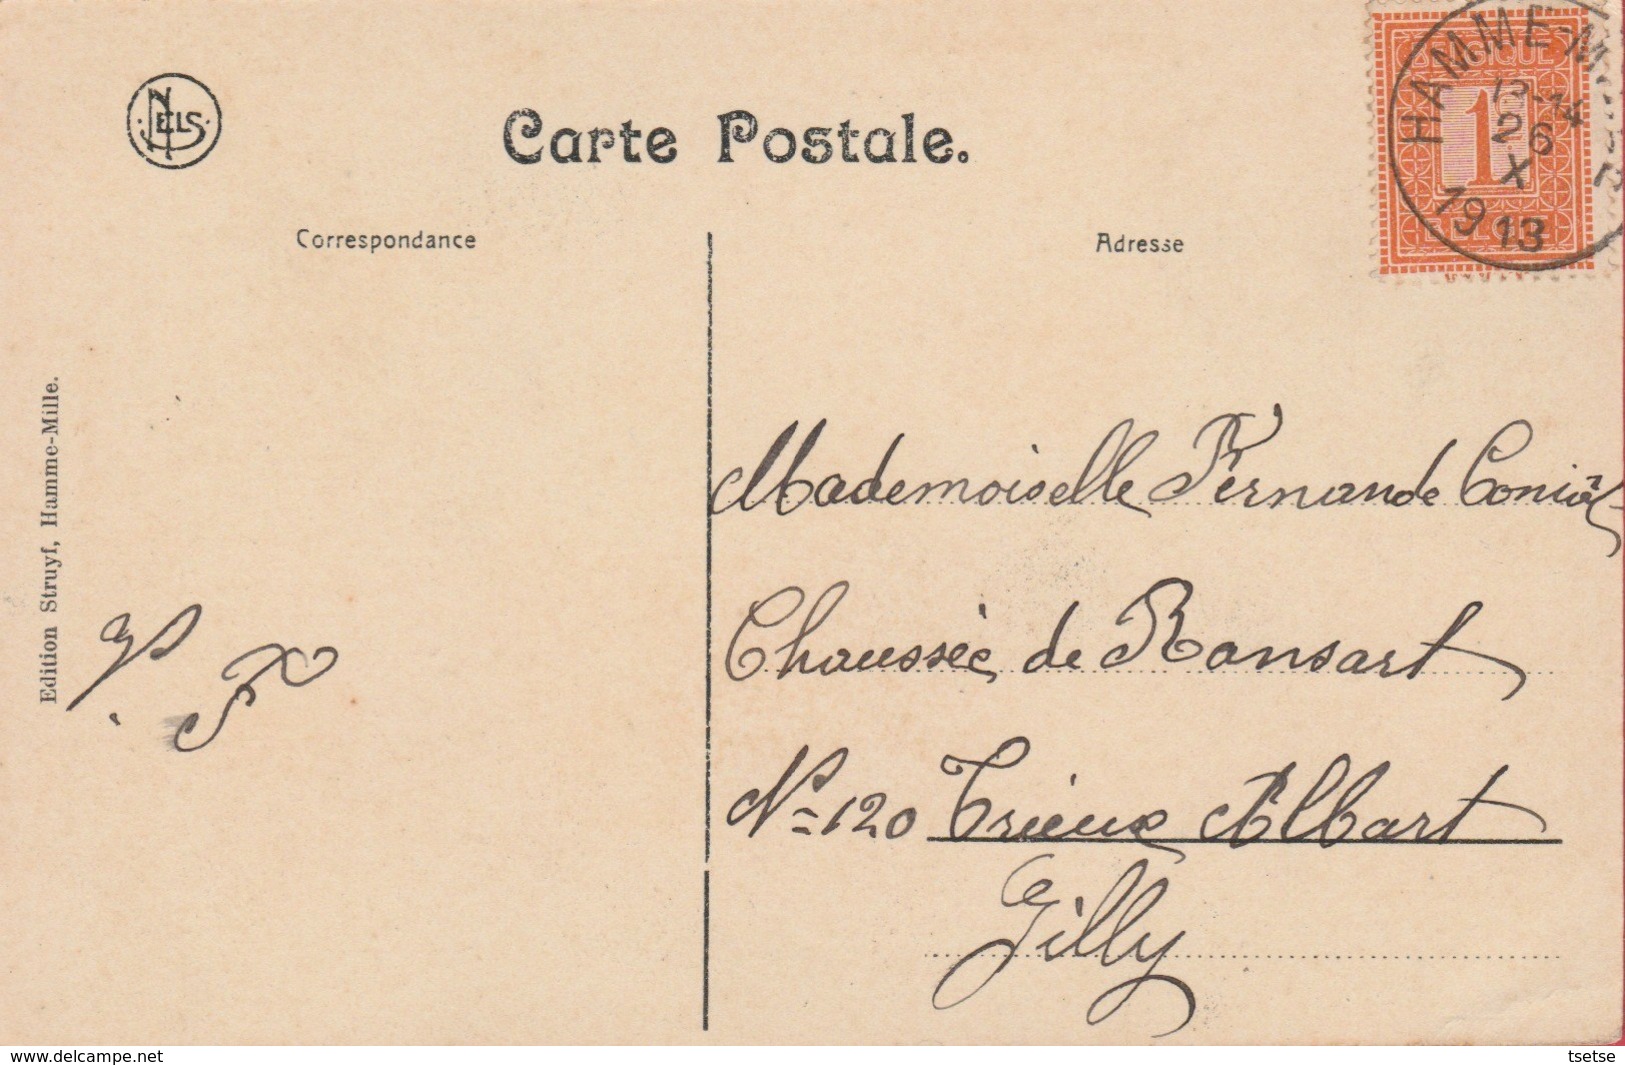 NELS
Carte Postale.
BELGIQUE
1
BELGIË
HAMME-M
12-14
26
X
1913
Correspondance
Adresse
Edition Struyf, Hamme-Mille.
Mademoiselle Fernande
Chaussée de Ransart
N= 120 Trieux Albart
Gilly
F
www.delcampe.net
tsetse